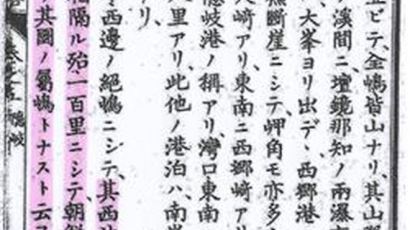 立ビテ、金嶋皆山ナリ、其山
ノ溪間ニ、壇鏡那知ノ兩瀑
、大峯ヨリ出デヽ、西郷港
無斷崖ニシテ、岬角モ亦多
大崎アリ、東南ニ西郷崎アリ
隱岐港ノ稱アリ、灣口東南
八里アリ、此他ノ港泊ハ、南
アリ、
ノ西邊ノ絶嶋ニシテ、其西
相隔ル殆一百里ニシテ、朝鮮
其國ノ屬嶋トナスト云
隱岐